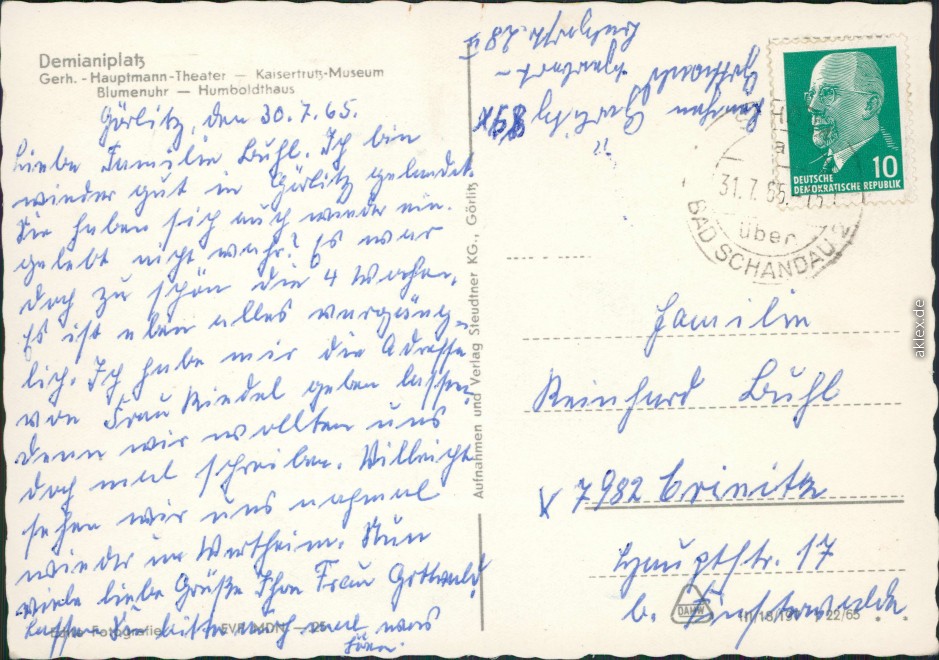 Demianiplatz
Gerh. - Hauptmann-Theater — Kaisertrutz-Museum
Blumenuhr — Humboldthaus
Görlitz, den 30.7.65.
Liebe Familie Buhl. Ich bin
wieder gut in Görlitz gelandet.
Sie haben sich auch wieder ein.
gelebt nicht wahr? Es war
doch zu schön die 4 Wochen.
Es ist eben alles vergäng-
lich. Ich habe mir die Adresse
von Frau Riedel geben lassen,
denn wir wollten uns
doch mal schreiben. Villeicht
sehen wir uns nochmal
wieder in Wertheim. Nun
viele liebe Grüße Ihre Frau Gottwald
lassen Sie bitte auch mal was
hören.
Echte Fotografie EVP MDN —,25
Aufnahmen und Verlag Steudtner KG., Görlitz
89x
DEUTSCHE
DEMOKRATISCHE REPUBLIK
10
a
31.7.65
über
BAD SCHANDAU 2
Familie
Reinhard Buhl
x 7982 Crinitz
Hauptstr. 17
b. Finsterwalde
DAHW
III/18/197 22/65
aklex.de